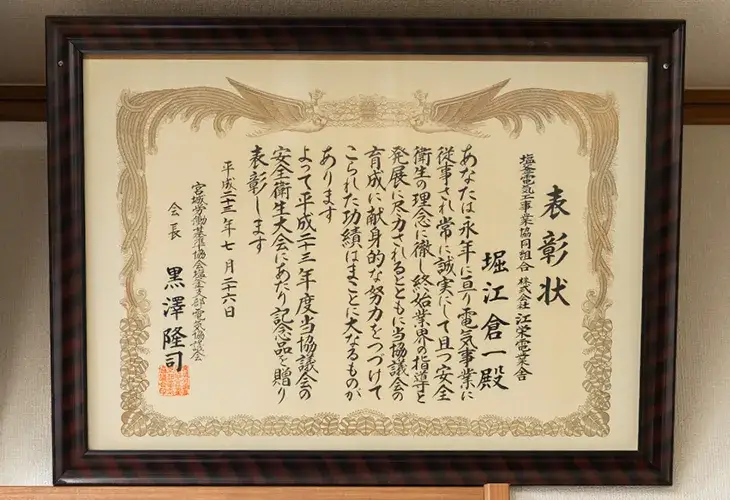 表彰状
塩釜電気工事業協同組合 株式会社 江栄電業舎
堀江倉一殿
あなたは永年に亘り電気事業に
従事され常に誠実にして且つ安全
衛生の理念に徹し終始業界の指導と
発展に尽力されるとともに当協議会の
育成に献身的な努力をつづけて
こられた功績はまことに大なるものが
あります
よって平成二十三年度当協議会の
安全衛生大会にあたり記念品を贈り
表彰します
平成二十三年七月二六日
宮城労働基準協会塩釜支部電気協議会
会長 黒澤隆司